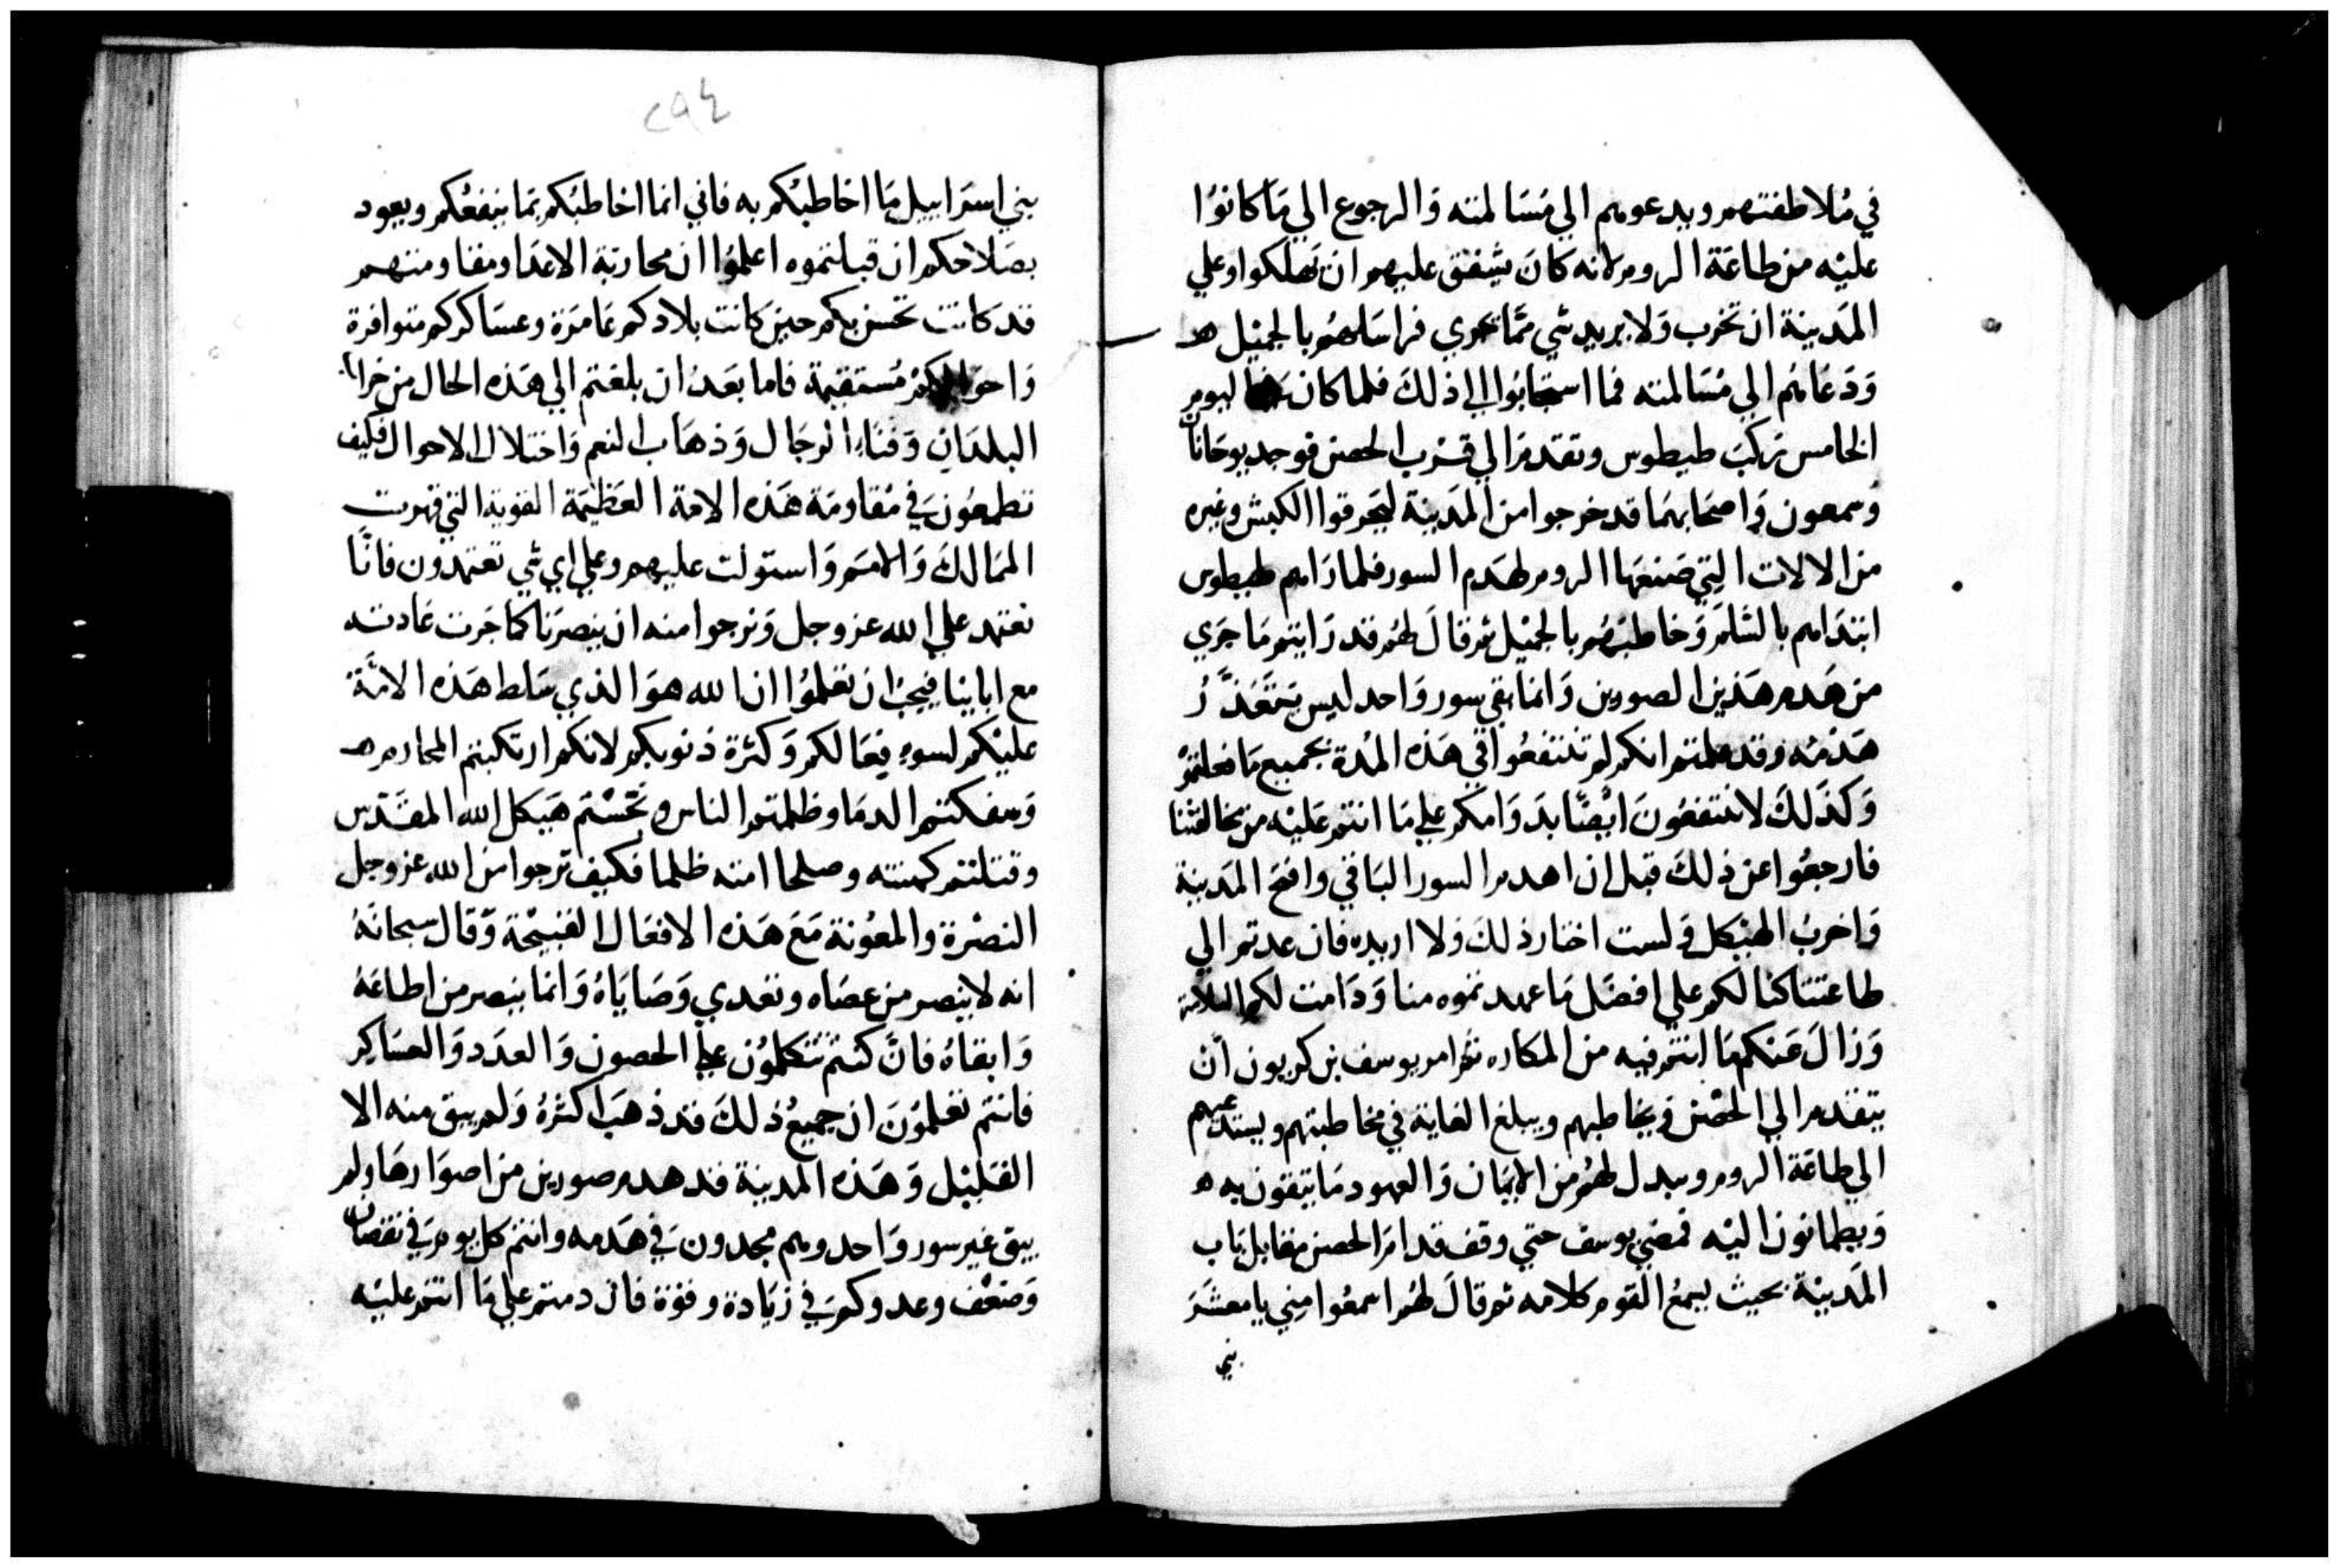 في ملاطفتهم ويدعوهم الي مسالمته والرجوع الي ما كانوا
عليه من طاعة الروم لانه كان يشفق عليهم ان يهلكوا وعلي
المدينة ان تخرب ولا يريد شي مما يجري فراسلهم بالجميل ه
ودعاهم الي مسالمته فما استجابوا الي ذلك فلما كان اليوم
الخامس ركب طيطوس وتقدم الي قرب الحصن فوجد يوحانان
وسمعون واصحابهما قد خرجوا من المدينة ليحرقوا الكبش وغيره
من الالات التي صنعها الروم لهدم السور فلما راهم طيطوس
ابتداهم بالسلم وخاطبهم بالجميل ثم قال لهم قد رايتم ما جري
من هدم هذين الصورين وانما بقي سور واحد ليس يتعذر
هدمه وقد علمتم انكم لم تنتفعوا في هذه المدة بجميع ما فعلتم
وكذلك لا تنتفعون ايضا بدوامكم علي ما انتم عليه من مخالفتنا
فارجعوا عن ذلك قبل ان اهدم السور الباقي وافتح المدينة
واخرب الهيكل ولست اختار ذلك ولا اريده فان عدتم الي
طاعتنا كنا لكم علي افضل ما عهدتموه منا ودامت لكم السلامة
وزال عنكم ما انتم فيه من المكاره ثم امر يوسف بن كريون ان
يتقدم الي الحصن ويخاطبهم ويبلغ الغاية في مخاطبتهم ويستدعيهم
الي طاعة الروم ويبدل لهم من الايمان والعهود ما يتقون به ه
ويطمانون اليه فمضي يوسف حتي وقف قدام الحصن مقابل باب
المدينة بحيث يسمع القوم كلامه ثم قال لهم اسمعوا مني يا معشر
بني
٢٩٤
بني اسراييل ما اخاطبكم به فاني انما اخاطبكم بما ينفعكم ويعود
بصلاحكم ان قبلتموه اعلموا ان محاربة الاعدا ومقاومتهم
قد كانت تحسن بكم حين كانت بلادكم عامرة وعساكركم متوافرة
واحوالكم مستقيمة فاما بعد ان بلغتم الي هذه الحال من خراب
البلدان وفناء الرجال وذهاب النعم واختلال الاحوال فكيف
تطمعون في مقاومة هذه الامة العظيمة القوية التي قهرت
الممالك والامم واستولت عليهم وعلي اي شي تعتمدون فانا
نعتمد علي الله عز وجل ونرجوا منه ان ينصرنا كما جرت عادته
مع ابايينا فيجب ان تعلموا ان الله هو الذي سلط هذه الامة
عليكم لسوء فعالكم وكثرة ذنوبكم لانكم ارتكبتم المحارم ه
وسفكتم الدما وظلمتم الناس ونجستم هيكل الله المقدس
وقتلتم كهنته وصلحا امته ظلما فكيف ترجوا من الله عز وجل
النصرة والمعونة مع هذه الافعال القبيحة وقال سبحانه
انه لا ينصر من عصاه وتعدي وصاياه وانما ينصر من اطاعه
وابقاه فان كنتم تتكلون علي الحصون والعدد والعساكر
فانتم تعلمون ان جميع ذلك قد ذهب اكثره ولم يبق منه الا
القليل وهذه المدينة قد هدم صورين من اصوارها ولم
يبق غير سور واحد وهم مجدون في هدمه وانتم كل يوم في نقصان
وضعف وعدوكم في زيادة وقوة فان دمتم علي ما انتم عليه